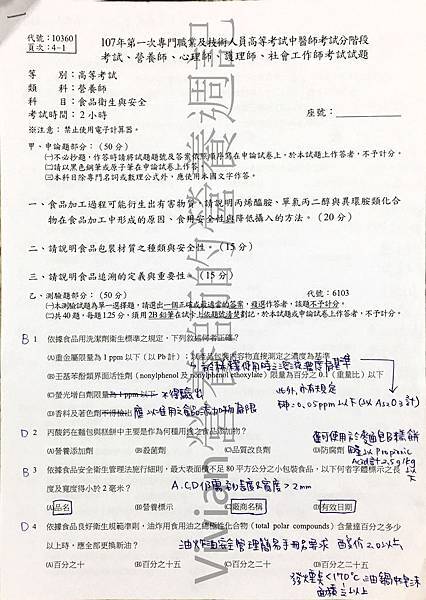 代號：10360
頁次：4-1
107年第一次專門職業及技術人員高等考試中醫師考試分階段
考試、營養師、心理師、護理師、社會工作師考試試題
等 別：高等考試
類 科：營養師
科 目：食品衛生與安全
考試時間：2小時
座號：
※注意：禁止使用電子計算器。
甲、申論題部分：（50分）
㈠不必抄題，作答時請將試題題號及答案依照順序寫在申論試卷上，於本試題上作答者，不予計分。
㈡請以黑色鋼筆或原子筆在申論試卷上作答。
㈢本科目除專門名詞或數理公式外，應使用本國文字作答。
一、食品加工過程可能衍生出有害物質，請說明丙烯醯胺、單氯丙二醇與異環胺類化合
物在食品加工中形成的原因、食用安全性與降低攝入的方法。（20分）
二、請說明食品包裝材質之種類與安全性。（15分）
三、請說明食品追溯的定義與重要性。（15分）
乙、測驗題部分：（50分）
代號：6103
㈠本測驗試題為單一選擇題，請選出一個正確或最適當的答案，複選作答者，該題不予計分。
㈡共40題，每題1.25分，須用2B鉛筆在試卡上依題號清楚劃記，於本試題或申論試卷上作答者，不予計分。
B 1 依據食品用洗潔劑衛生標準之規定，下列敘述何者正確？
(A)重金屬限量為1 ppm以下（以Pb計）；以產品包裝內容物直接測定之濃度為基準
(B)壬基苯酚類界面活性劑（nonylphenol 及 nonylphenol ethoxylate）限量為百分之0.1（重量比）以下
(C)螢光增白劑限量為1 ppm以下 不得檢出
此外,亦有規定
(D)香料及著色劑不得檢出 應以准用之食品添加物為限
砷=0.05ppm以下(以As2O3計)
D 2 丙酸鈣在麵包與糕餅中主要是作為何種用途之食品添加物？
(A)營養添加劑 (B)殺菌劑 (C)品質改良劑 (D)防腐劑
B 3 依據食品安全衛生管理法施行細則，最大表面積不足80平方公分之小包裝食品，以下何者字體標示之長
度及寬度得小於2毫米？
(A)品名 (B)營養標示 (C)廠商名稱 (D)有效日期
D 4 依據食品良好衛生規範準則，油炸用食用油之總極性化合物（total polar compounds）含量達百分之多少
以上時，應全部更換新油？
(A)百分之十 (B)百分之十五 (C)百分之二十 (D)百分之二十五
ViVian營養師的營養週記